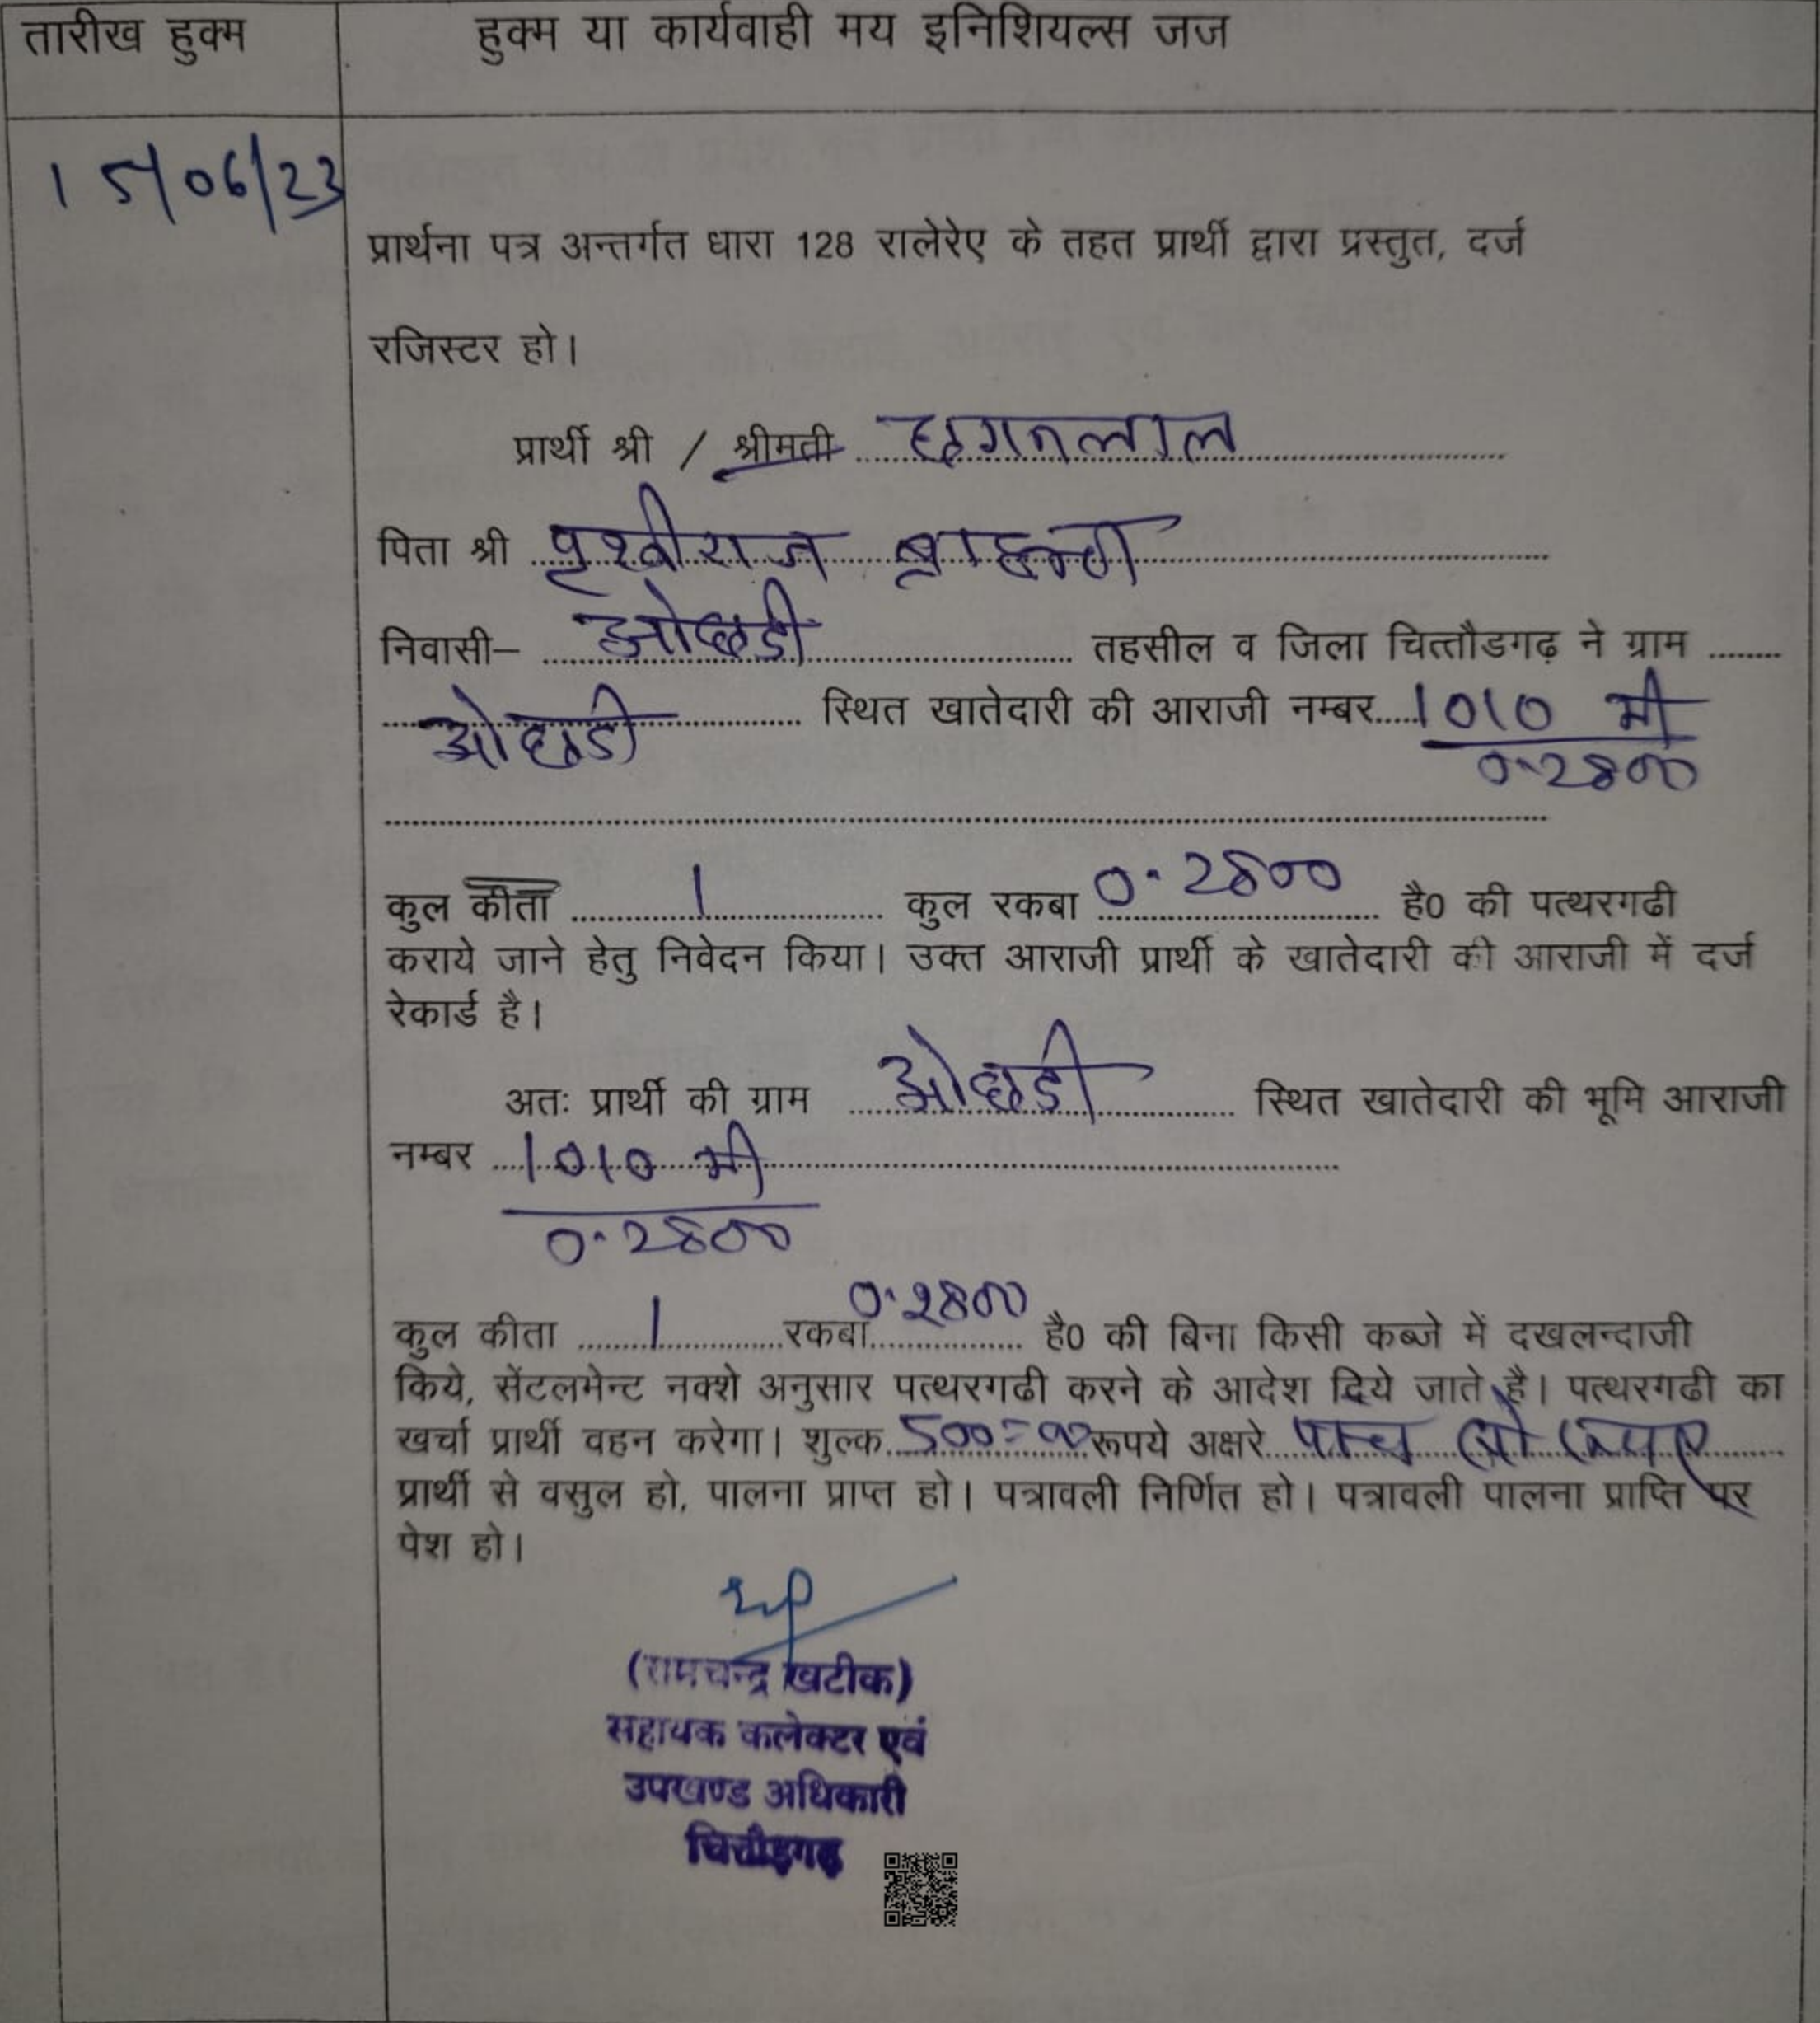 तारीख हुक्म
हुक्म या कार्यवाही मय इनिशियल्स जज
15/06/23
प्रार्थना पत्र अन्तर्गत धारा 128 रालेरेए के तहत प्रार्थी द्वारा प्रस्तुत, दर्ज
रजिस्टर हो।
प्रार्थी श्री / श्रीमती छगनलाल
पिता श्री पृथ्वीराज ब्राह्मण
निवासी– ओछडी तहसील व जिला चित्तौडगढ़ ने ग्राम
ओछडी स्थित खातेदारी की आराजी नम्बर 1010 मी
0.2800
कुल कीता 1 कुल रकबा 0.2800 है0 की पत्थरगढी
कराये जाने हेतु निवेदन किया। उक्त आराजी प्रार्थी के खातेदारी की आराजी में दर्ज
रेकार्ड है।
अतः प्रार्थी की ग्राम ओछडी स्थित खातेदारी की भूमि आराजी
नम्बर 1010 मी
0.2800
कुल कीता 1 रकबा 0.2800 है0 की बिना किसी कब्जे में दखलन्दाजी
किये, सेंटलमेन्ट नक्शे अनुसार पत्थरगढी करने के आदेश दिये जाते है। पत्थरगढी का
खर्चा प्रार्थी वहन करेगा। शुल्क 500=00 रूपये अक्षरे पान्च सो रूपए
प्रार्थी से वसुल हो, पालना प्राप्त हो। पत्रावली निर्णित हो। पत्रावली पालना प्राप्ति पर
पेश हो।
(रामचन्द्र खटीक)
सहायक कलेक्टर एवं
उपखण्ड अधिकारी
चित्तौड़गढ़